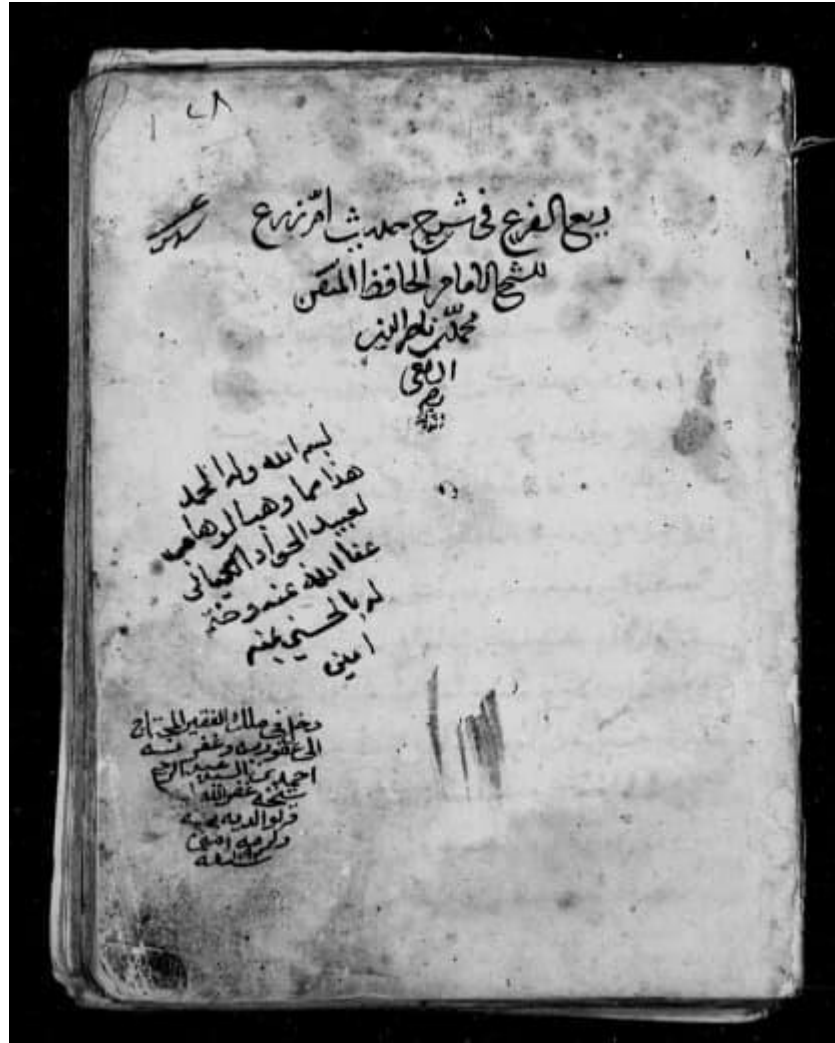 ٢٨
١
ربيع الفرع في شرح حديث ام زرع
للشيخ الامام الحافظ المتقن
محمد بن ناصر الدين
لبسم الله وله الحمد
هذا مما وهب الوهاب
لعبيد الجواد الكيالي
عفا الله عنه وختم
له بالحسنى بمنه
امين
دخل في ملك الفقير المحتاج
الى عفو ربه وغفر
احمد بن السيد عبد
غفر الله
ولوالديه
وكرمه امين